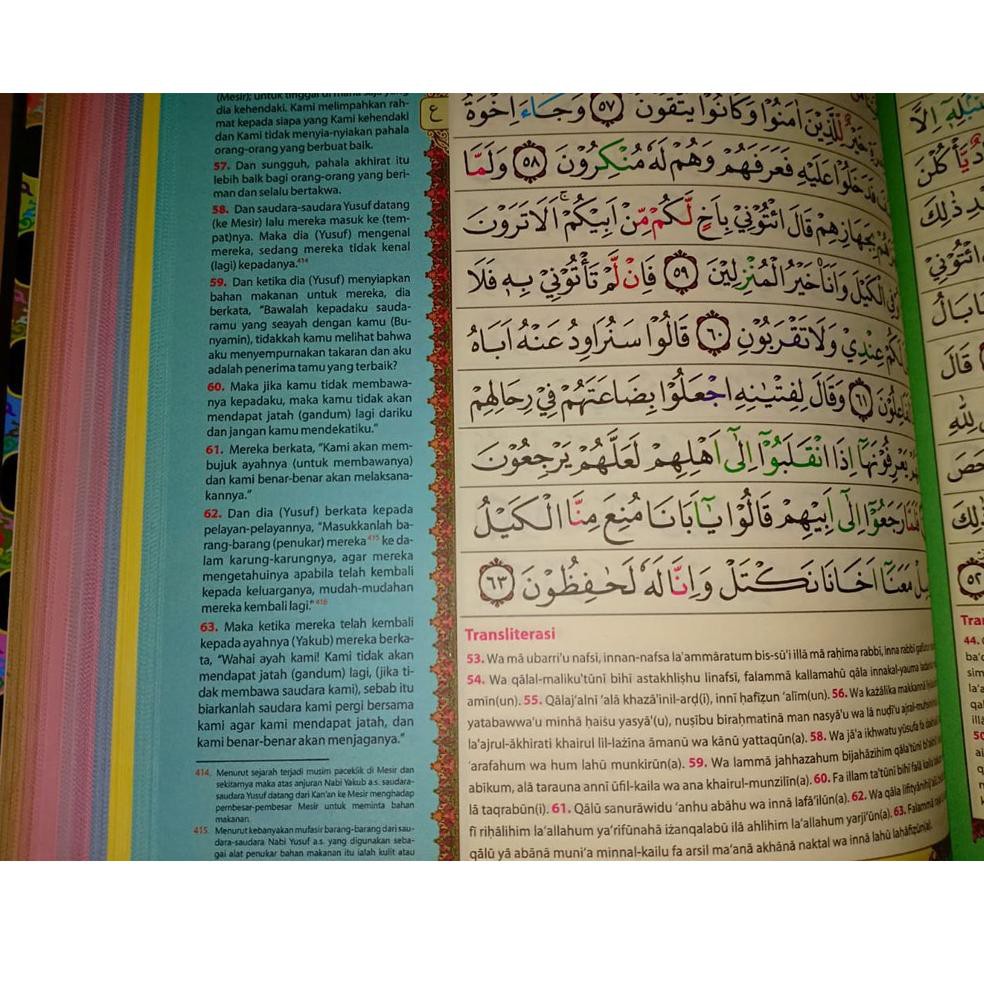 dia kehendaki. Kami melimpahkan rah-
mat kepada siapa yang Kami kehendaki
dan Kami tidak menyia-nyiakan pahala
orang-orang yang berbuat baik.
57. Dan sungguh, pahala akhirat itu
lebih baik bagi orang-orang yang beri-
man dan selalu bertakwa.
58. Dan saudara-saudara Yusuf datang
(ke Mesir) lalu mereka masuk ke (tem-
pat)nya. Maka dia (Yusuf) mengenal
mereka, sedang mereka tidak kenal
(lagi) kepadanya.414
59. Dan ketika dia (Yusuf) menyiapkan
bahan makanan untuk mereka, dia
berkata, "Bawalah kepadaku sauda-
ramu yang seayah dengan kamu (Bu-
nyamin), tidakkah kamu melihat bahwa
aku menyempurnakan takaran dan aku
adalah penerima tamu yang terbaik?
60. Maka jika kamu tidak membawa-
nya kepadaku, maka kamu tidak akan
mendapat jatah (gandum) lagi dariku
dan jangan kamu mendekatiku."
61. Mereka berkata, "Kami akan mem-
bujuk ayahnya (untuk membawanya)
dan kami benar-benar akan melaksana-
kannya."
62. Dan dia (Yusuf) berkata kepada
pelayan-pelayannya, "Masukkanlah ba-
rang-barang (penukar) mereka 415 ke da-
lam karung-karungnya, agar mereka
mengetahuinya apabila telah kembali
kepada keluarganya, mudah-mudahan
mereka kembali lagi." 416
63. Maka ketika mereka telah kembali
kepada ayahnya (Yakub) mereka berka-
ta, "Wahai ayah kami! Kami tidak akan
mendapat jatah (gandum) lagi, (jika ti-
dak membawa saudara kami), sebab itu
biarkanlah saudara kami pergi bersama
kami agar kami mendapat jatah, dan
kami benar-benar akan menjaganya."
414. Menurut sejarah terjadi musim paceklik di Mesir dan
sekitarnya maka atas anjuran Nabi Yakub a.s. saudara-
saudara Yusuf datang dari Kan'an ke Mesir menghadap
pembesar-pembesar Mesir untuk meminta bahan
makanan.
415. Menurut kebanyakan mufasir barang-barang dari sau-
dara-saudara Nabi Yusuf a.s. yang digunakan seba-
gai alat penukar bahan makanan itu ialah kulit atau
ع
خَيْرٌ لِّلَّذِيْنَ اٰمَنُوْا وَكَانُوْا يَتَّقُوْنَ ٥٧ وَجَاۤءَ اِخْوَةُ
فَدَخَلُوْا عَلَيْهِ فَعَرَفَهُمْ وَهُمْ لَهٗ مُنْكِرُوْنَ ٥٨ وَلَمَّا
بِجَهَازِهِمْ قَالَ ائْتُوْنِيْ بِاَخٍ لَّكُمْ مِّنْ اَبِيْكُمْ ۚ اَلَا تَرَوْنَ
الْكَيْلَ وَاَنَا۠ خَيْرُ الْمُنْزِلِيْنَ ٥٩ فَاِنْ لَّمْ تَأْتُوْنِيْ بِهٖ فَلَا
لَكُمْ عِنْدِيْ وَلَا تَقْرَبُوْنِ ٦٠ قَالُوْا سَنُرَاوِدُ عَنْهُ اَبَاهُ
٦١ وَقَالَ لِفِتْيٰنِهِ اجْعَلُوْا بِضَاعَتَهُمْ فِيْ رِحَالِهِمْ
يَعْرِفُوْنَهَآ اِذَا انْقَلَبُوْٓا اِلٰٓى اَهْلِهِمْ لَعَلَّهُمْ يَرْجِعُوْنَ
رَجَعُوْٓا اِلٰٓى اَبِيْهِمْ قَالُوْا يٰٓاَبَانَا مُنِعَ مِنَّا الْكَيْلُ
مَعَنَآ اَخَانَا نَكْتَلْ وَاِنَّا لَهٗ لَحٰفِظُوْنَ ٦٣
Transliterasi
53. Wa mā ubarri'u nafsī, innan-nafsa la'ammāratum bis-sū'i illā mā raḥima rabbī, inna rabbī
54. Wa qālal-maliku'tūnī bihī astakhliṣhu linafsī, falammā kallamahū qāla innakal-yauma
amīn(un). 55. Qālaj'alnī 'alā khazā'inil-arḍ(i), innī ḥafīẓun 'alīm(un). 56. Wa każālika makkannā
yatabawwa'u minhā ḥaiṡu yasyā'(u), nuṣību biraḥmatinā man nasyā'u wa lā nuḍī'u
la'ajrul-ākhirati khairul lil-lażīna āmanū wa kānū yattaqūn(a). 58. Wa jā'a ikhwatu yūsufa fa
'arafahum wa hum lahū munkirūn(a). 59. Wa lammā jahhazahum bijahāzihim qāla'tūnī
abīkum, alā tarauna annī ūfil-kaila wa ana khairul-munzilīn(a). 60. Fa illam ta'tūnī bihī falā kaila
lā taqrabūn(i). 61. Qālū sanurāwidu 'anhu abāhu wa innā lafā'ilūn(a). 62. Wa qāla lifityānihij
fī riḥālihim la'allahum ya'rifūnahā iżanqalabū ilā ahlihim la'allahum yarji'ūn(a). 63. Falammā
qālū yā abānā muni'a minnal-kailu fa arsil ma'anā akhānā naktal wa innā lahū laḥāfiẓūn(a).
اِلَّا
يَّأْكُلْنَ
ذٰلِكَ
ائْتُوْنِيْ
بَالُ
قَالَ
لِلّٰهِ
٥٢
44.